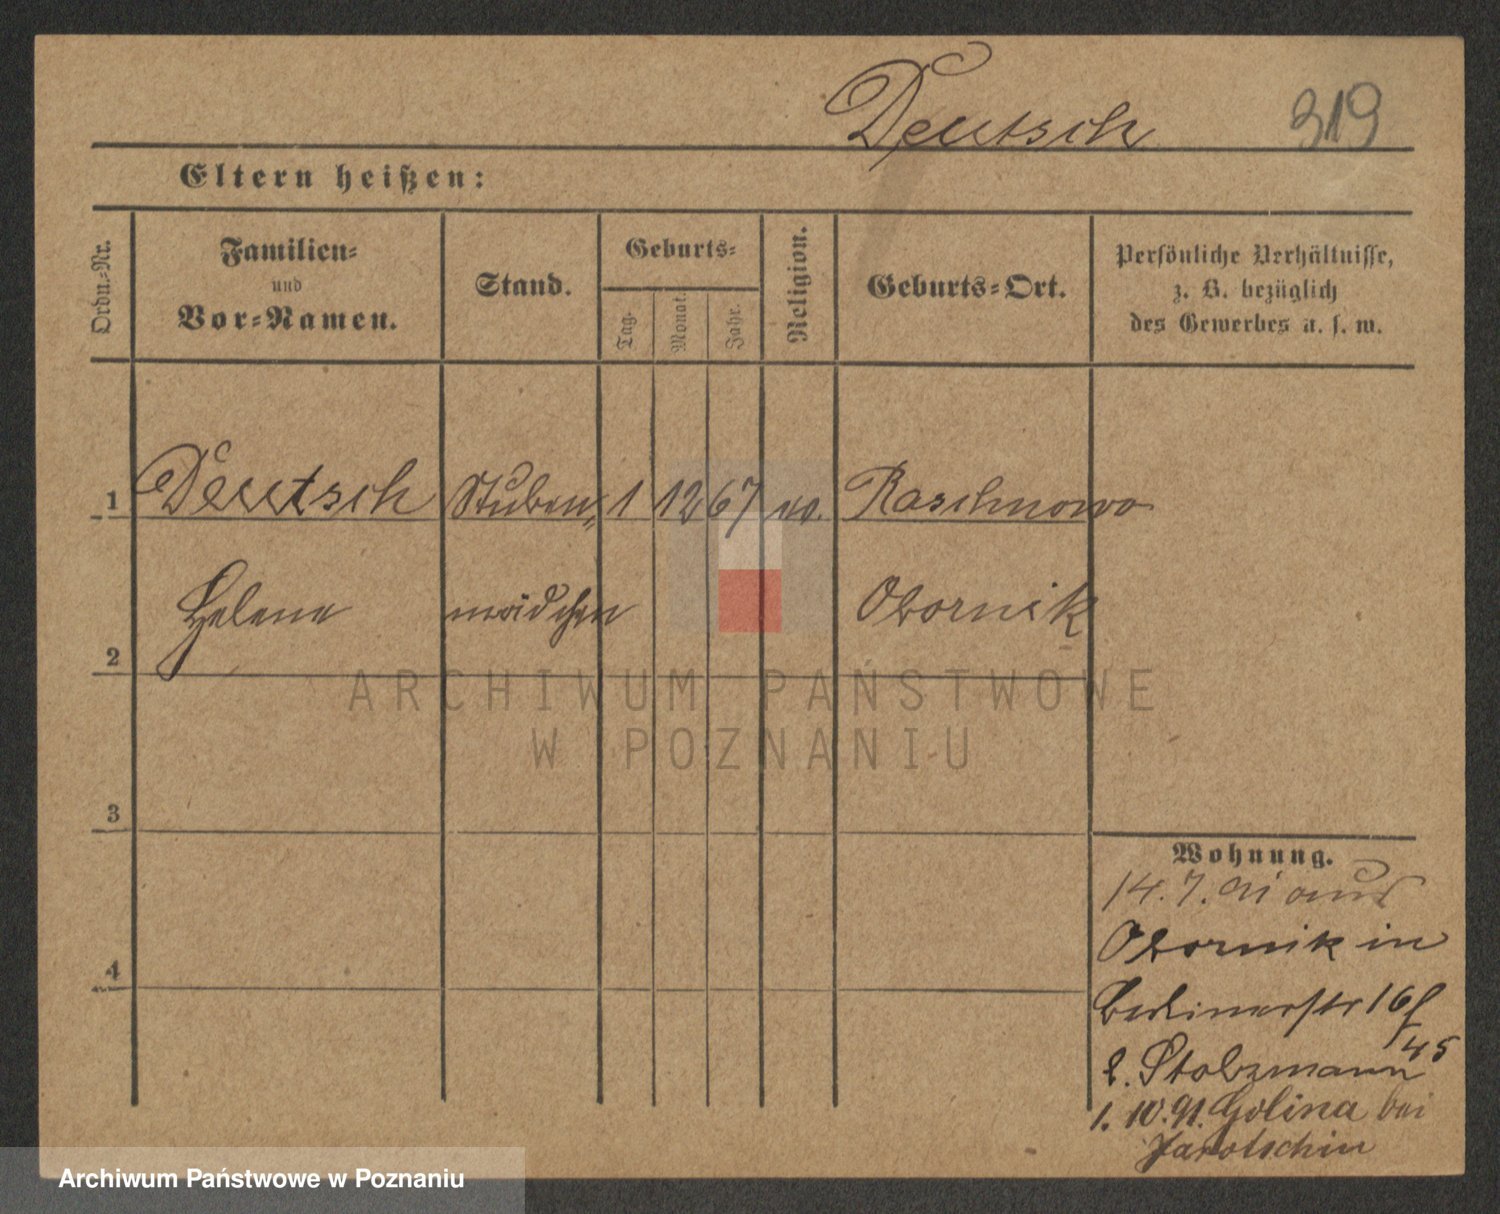 Deutsch 319
Eltern heißen:
Ordn.-Nr.
Familien-
und
Vor-Namen.
Stand.
Geburts-
Tag.
Monat.
Jahr.
Religion.
Geburts-Ort.
Persönliche Verhältnisse,
z. B. bezüglich
des Gewerbes u. s. w.
1 Deutsch Stuben- 1 12 67 Raschnowo
Helene mädchen Obornik
2
3
4
Wohnung.
14. 7. 91 aus
Obornik in
Berlinerstr 16
Stolzmann 45
1. 10. 91. Golina bei
Jarotschin
ARCHIWUM PAŃSTWOWE
W POZNANIU
Archiwum Państwowe w Poznaniu